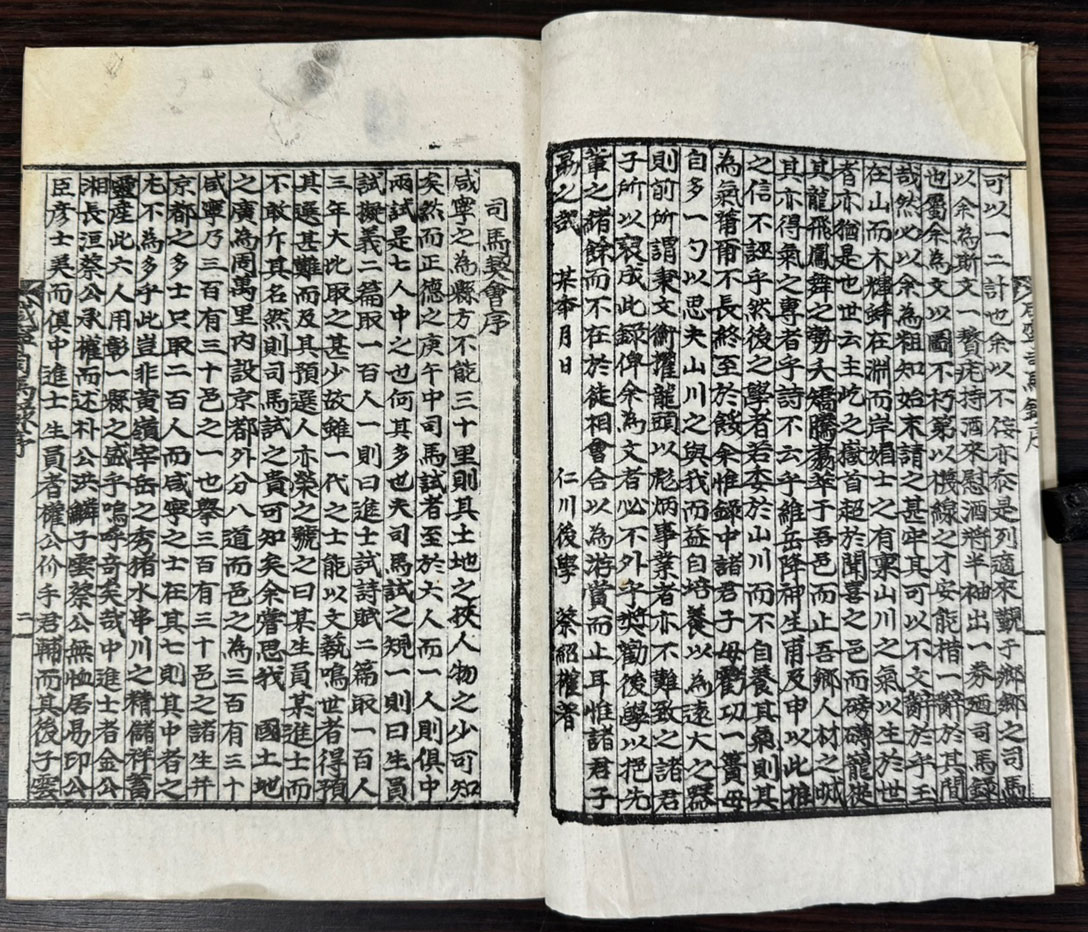 可以一二計也余以不侫亦忝是列適來觀于鄕鄕之司馬
以余為斯文一贅疣持酒來慰酒將半袖出一券廼司馬錄
也屬余為文以圖不朽第以機線之才安能楷一辭於其間
哉然必以余為粗知始末請之甚牢其可以不文辭於乎玉
在山而木輝蚌在淵而岸媚士之有稟山川之氣以生於世
者亦猶是也世云主屹之嶽首超於聞喜之邑而磅礴龍從
其龍飛鳳舞之勢夭矯騰蕩萃于吾邑而止吾鄉人材之城
其亦得氣之專者乎詩不云乎維岳降神生甫及申以此推
之信不誣乎然後之學者若委於山川而不自養其氣則其
為氣莆莆不長終至於餒余惟錄中諸君子毋虧功一蕢毋
自多一勺以思夫山川之與我而益自培養以為遠大之器
則前所謂秉文衡擢龍頭以彪炳事業者亦不難致之諸君
子所以裒成此錄俾余為文者必不外乎奬勸後學以挹先
輩之緖餘而不在於徒相會合以為游賞而止耳惟諸君子
勗之哉 某年月日 仁川後學 蔡紹權著
司馬契會序
咸寧之為縣方不能三十里則其土地之挾人物之少可知
矣然而正德之庚午中司馬試者至於六人而一人則俱中
兩試是七人中之也何其多也夫司馬試之規一則曰生員
試擬義二篇取一百人一則曰進士試詩賦二篇取一百人
三年大比取之甚少故雖一代之士能以文藝鳴世者得預
其選甚難而及其預選人亦榮之號之曰某生員某進士而
不敢斥其名然則司馬試之貴可知矣余嘗思我 國土地
之廣為周萬里內設京都外分八道而邑之為三百有三十
咸寧乃三百有三十邑之一也擧三百有三十邑之諸生幷
京都之多士只取二百人而咸寧之士在其七則其中者之
尤不為多乎此豈非黃嶺宰岳之秀猪水串川之精儲祥蓄
靈產此六人用彰一縣之盛乎嗚呼奇矣哉中進士者金公
湘長洹蔡公承權而述朴公洪鱗子雲蔡公無恤居易印公
臣彦士美而俱中進士生員者權公价手君輔而其後子雲
二